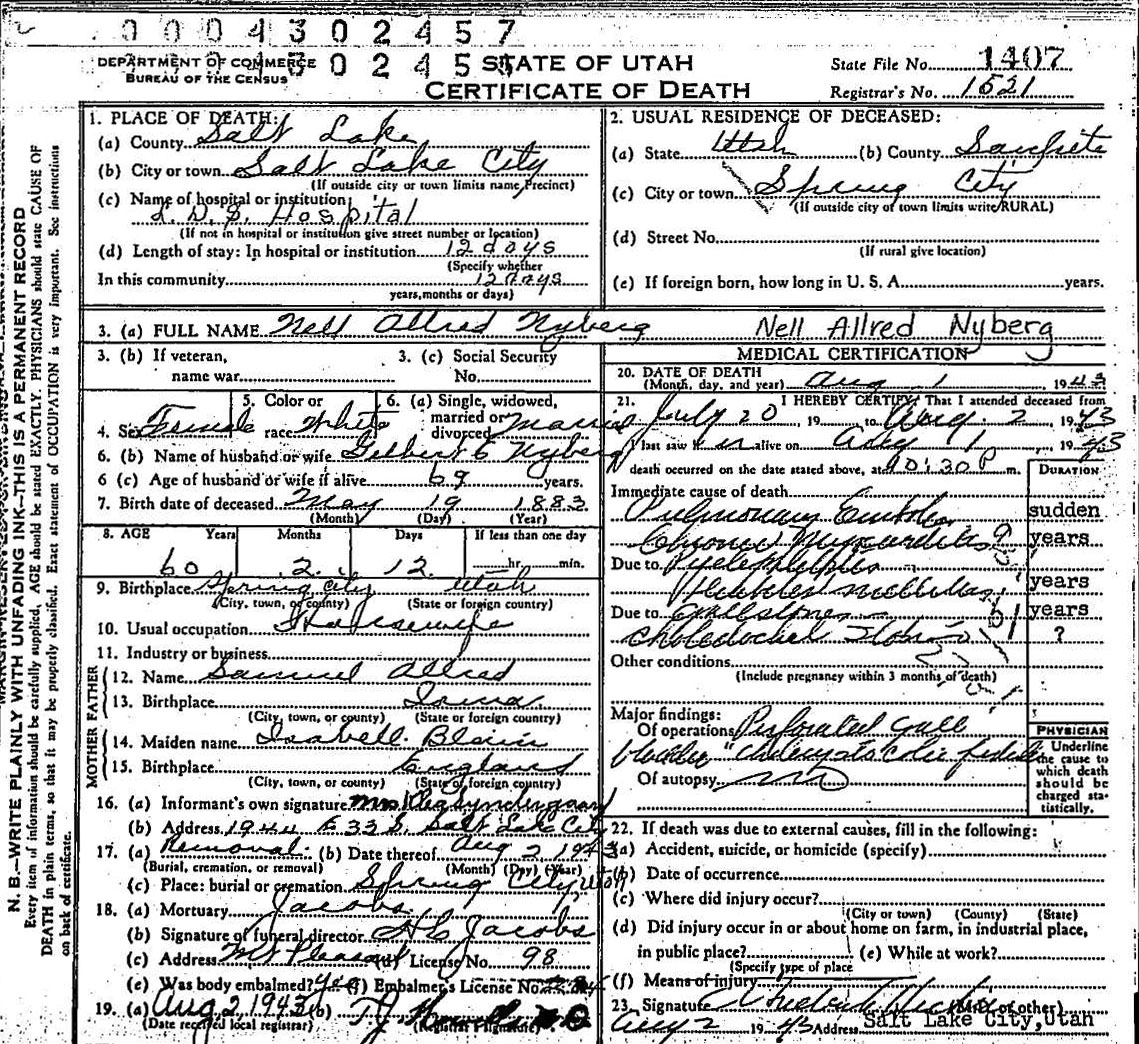 0004302457
DEPARTMENT OF COMMERCE
BUREAU OF THE CENSUS
STATE OF UTAH
CERTIFICATE OF DEATH
State File No. 1407
Registrar's No. 1521
N. B.—WRITE PLAINLY WITH UNFADING INK—THIS IS A PERMANENT RECORD
Every item of information should be carefully supplied. AGE should be stated EXACTLY. PHYSICIANS should state CAUSE OF
DEATH in plain terms, so that it may be properly classified. Exact statement of OCCUPATION is very important. See instructions
on back of certificate.
1. PLACE OF DEATH:
(a) County Salt Lake
(b) City or town Salt Lake City
(If outside city or town limits name Precinct)
(c) Name of hospital or institution
L. D. S. Hospital
(If not in hospital or institution give street number or location)
(d) Length of stay: In hospital or institution 12 days
(Specify whether
In this community 12 days
years, months or days)
2. USUAL RESIDENCE OF DECEASED:
(a) State Utah (b) County Sanpete
(c) City or town Spring City
(If outside city of town limits write RURAL)
(d) Street No.
(If rural give location)
(e) If foreign born, how long in U. S. A. years.
3. (a) FULL NAME Nell Allred Nyberg Nell Allred Nyberg
3. (b) If veteran,
name war
3. (c) Social Security
No.
4. Sex Female
5. Color or
race White
6. (a) Single, widowed,
married or
divorced Married
6. (b) Name of husband or wife Gilbert E Nyberg
6 (c) Age of husband or wife if alive 69 years.
7. Birth date of deceased May 19 1883
(Month) (Day) (Year)
8. AGE Years Months Days If less than one day
60 2 12 hr. min.
9. Birthplace Spring City Utah
(City, town, or county) (State or foreign country)
10. Usual occupation Housewife
11. Industry or business
FATHER
12. Name Samuel Allred
13. Birthplace Iowa
(City, town, or county) (State or foreign country)
MOTHER
14. Maiden name Isabell Blain
15. Birthplace England
(City, town, or county) (State of foreign country)
16. (a) Informant's own signature Mrs
(b) Address 1944 E 33 S. Salt Lake City
17. (a) Removal (b) Date thereof Aug 2 1943
(Burial, cremation, or removal) (Month) (Day) (Year)
(c) Place: burial or cremation Spring City, Utah
18. (a) Mortuary Jacobs
(b) Signature of funeral director H C Jacobs
(c) Address Mt Pleasant (d) License No. 98
(e) Was body embalmed? yes (f) Embalmer's License No.
19. (a) Aug 2, 1943 (b)
(Date received local registrar) (Registrar's signature)
MEDICAL CERTIFICATION
20. DATE OF DEATH
(Month, day, and year) Aug 1, 1943
21. I HEREBY CERTIFY, That I attended deceased from
July 20, 19 to Aug. 2 1943
I last saw h er alive on Aug 1 1943
death occurred on the date stated above, at 10:30 P m.
DURATION
Immediate cause of death
Pulmonary Embolus sudden
Chronic Myocarditis years
Due to
years
Due to Gallstones years
Choledochal Stone ?
Other conditions
(Include pregnancy within 3 months of death)
Major findings:
Of operations Perforated Gall
bladder
Of autopsy no
PHYSICIAN
Underline
the cause to
which death
should be
charged sta-
tistically.
22. If death was due to external causes, fill in the following:
(a) Accident, suicide, or homicide (specify)
(b) Date of occurrence
(c) Where did injury occur?
(City or town) (County) (State)
(d) Did injury occur in or about home on farm, in industrial place,
in public place? (e) While at work?
(Specify type of place
(f) Means of injury
23. Signature (M.D. or other)
Aug 2 1943 Address Salt Lake City, Utah